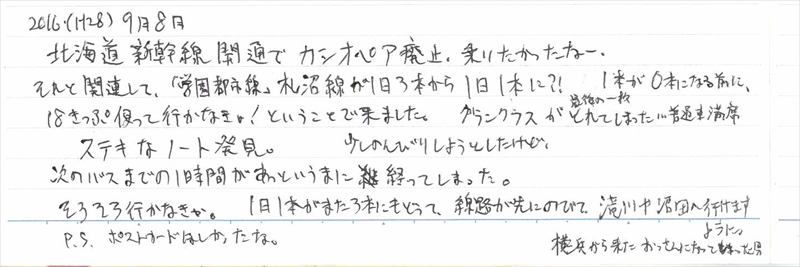 2016.(H28) 9月8日
北海道新幹線開通でカシオペア廃止、乗りたかったなー。
それと関連して、「学園都市線」札沼線が1日3本から1日1本に?! 1本が0本になる前に、
18きっぷ使って行かなきゃ!ということで来ました。 グランクラスが最後の一枚とれてしまった!!!普通車満席
ステキなノート発見。 少しのんびりしようとしたけど、
次のバスまでの1時間があっというまに経ってしまった。
そろそろ行かなきゃ。 1日1本がまた3本にもどって、線路が先にのびて 滝川や沼田へ行けます
ように。
P.S. ポストカードほしかったな。
横浜から来た おっさんになってしまった男